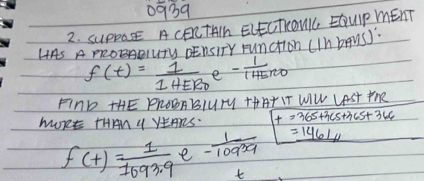 0939
2. SUPPOSE A CERTAIN ELECTRONIC EQUIPMENT
HAS A PROBABILITY DENSITY FUNCTION (IN DAYS):
f(t) = 1/1HERO e - 1/1HERO
FIND THE PROBABILITY THAT IT WILL LAST FOR
MORE THAN 4 YEARS.
t = 365+365+365+366
= 1461//
f(t) = 1/1093.9 e - 1/10939
t